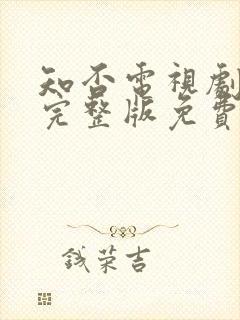 知否電視劇
完整版免費
钱荣吉